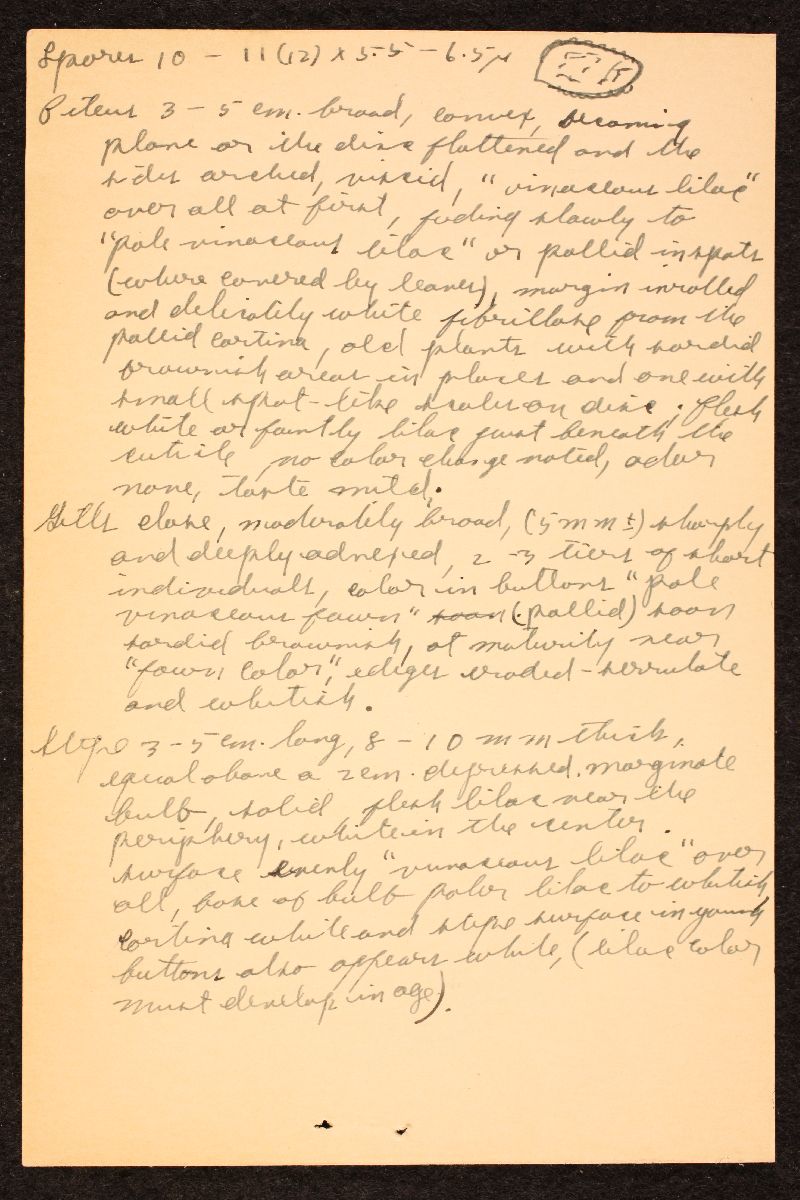 Spores 10 – 11 (12) x 5.5 – 6.5 μ
Pileus 3 – 5 cm. broad, convex, becoming
plane or the disc flattened and the
sides arched, viscid, "vinaceous lilac"
over all at first, fading slowly to
"pale vinaceous lilac" or pallid in spots
(where covered by leaves), margin inrolled
and delicately white fibrillose from the
pallid cortina, old plants with sordid
brownish areas in places and one with
small spot-like scales on disc; flesh
white or faintly lilac just beneath the
cuticle, no color change noted, odor
none, taste mild.
Gills close, moderately broad, (5 mm ±) sharply
and deeply adnexed, 2 - 3 tiers of short
individuals, color in buttons "pale
vinaceous fawn" soon (pallid) soon
sordid brownish, at maturity near
"fawn color", edges eroded-serrulate
and whitish.
Stipe 3 – 5 cm. long, 8 – 10 mm thick,
equal above a 2 cm. depressed, marginate
bulb, solid, flesh lilac near the
periphery, white in the center.
surface evenly "vinaceous lilac" over
all, base of bulb paler lilac to whitish,
cortina white and stipe surface in young
buttons also appears white, (lilac color
must develop in age).